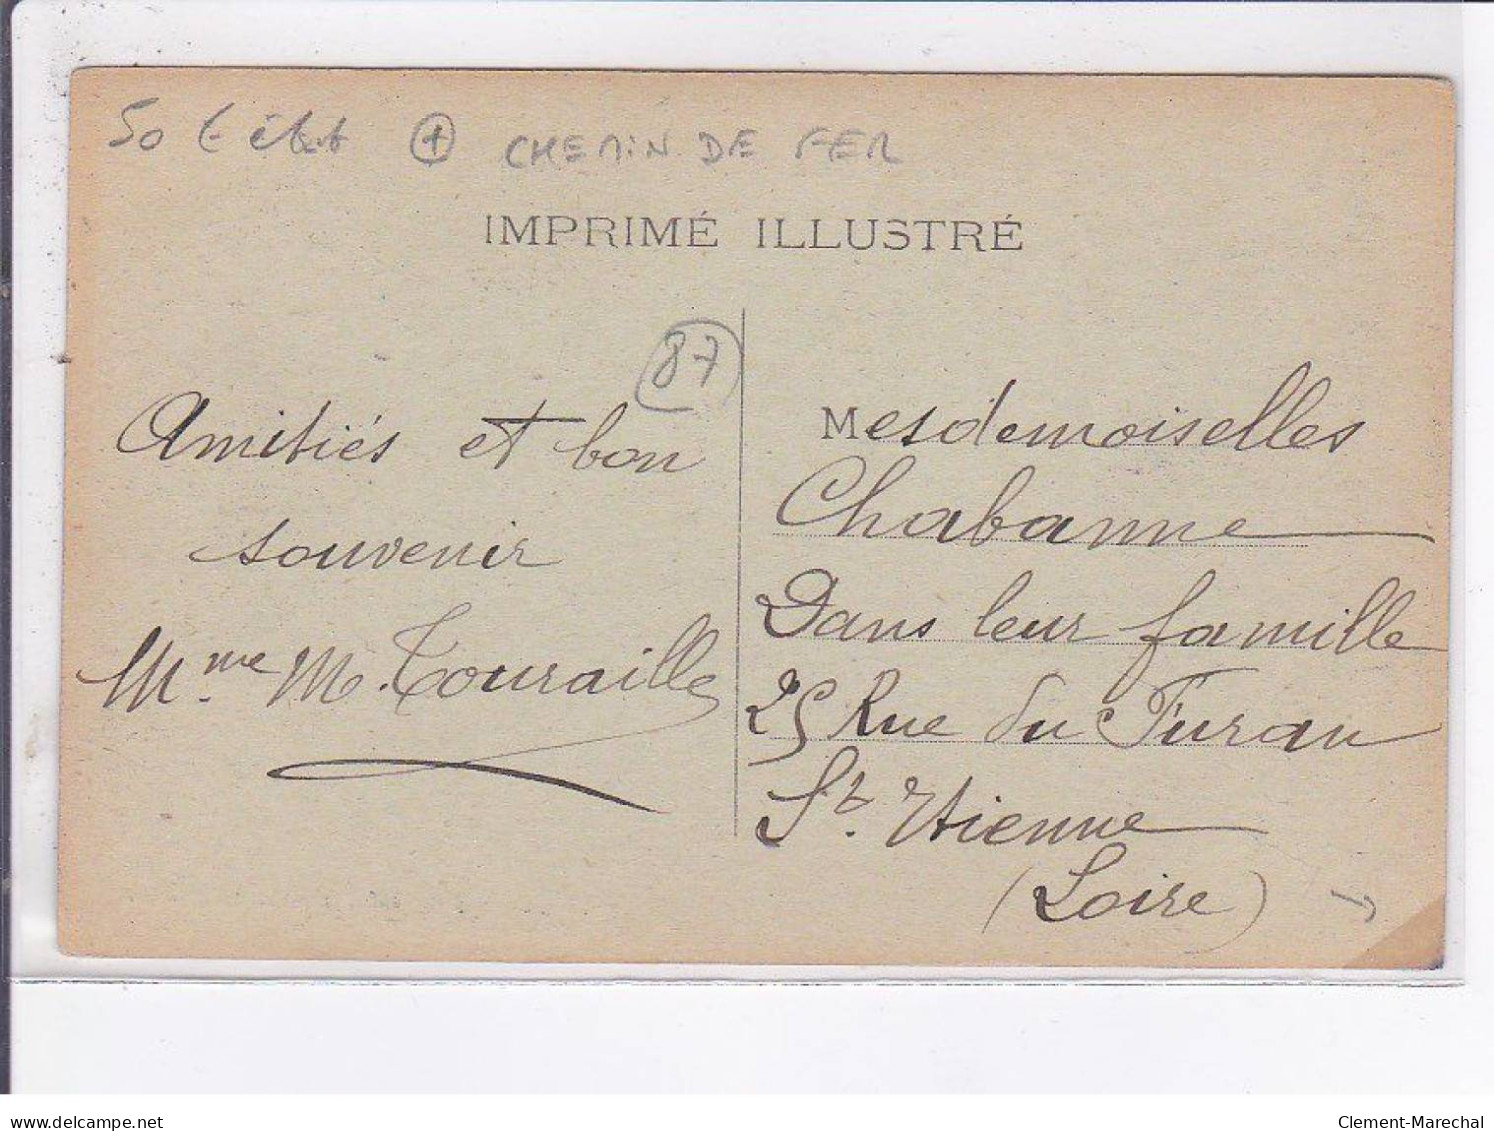 50 € état + CHEMIN DE FER
IMPRIMÉ ILLUSTRÉ
87
Amitiés et bon
souvenir
Mme M. Touraille
Mesdemoiselles
Chabanne
Dans leur famille
25 Rue du Furan
St. Etienne
(Loire)
delcampe.net
Clement-Marechal